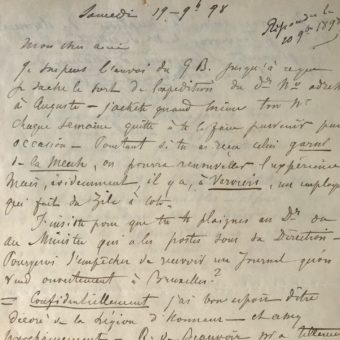 Samedi 19 - 9b 98
Répondu le
20 9b 1898
Mon cher ami
Je suspens l'envoi du G B. jusqu'à ce que
je sache le sort de l'expédition du Der No adressé
à Auguste - j'achète quand même ton No
chaque semaine quitte à te le faire parvenir par
occasion - Pourtant si tu as reçu celui
de la Meuse, on pourra renouveller l'expérience
Mais, évidemment, il y a, à Verviers, un employé
qui fait du Zèle à
J'insiste pour que tu te plaignes au Dr ou
au Ministre qui a les postes sous sa Direction -
Pourquoi t'empêcher de recevoir un Journal qu'on
vend ouvertement à Bruxelles?
= Confidentiellement j'ai bon espoir d'être
décoré de la Légion d'Honneur - et assez
prochainement - R. de Beauvoir m'a tellement